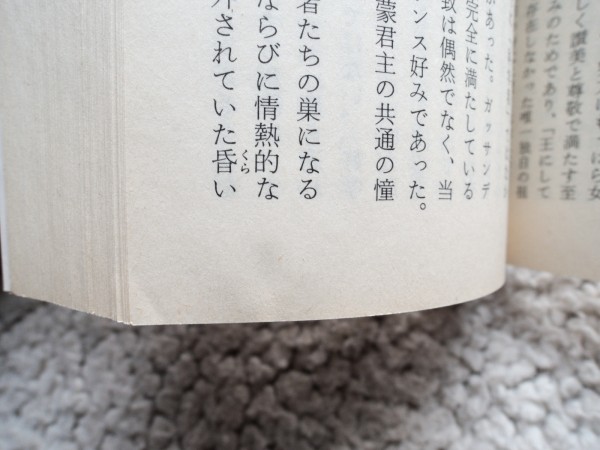 しく讃美と尊敬で満たす至
みのためであり、「王にして
存在しなかった唯一独自の報
があった。ガッサンデ
完全に満たしている
致は偶然でなく、当
ンス好みであった。
蒙君主の共通の憧
者たちの巣になる
ならびに情熱的な
外されていた昏い
くら